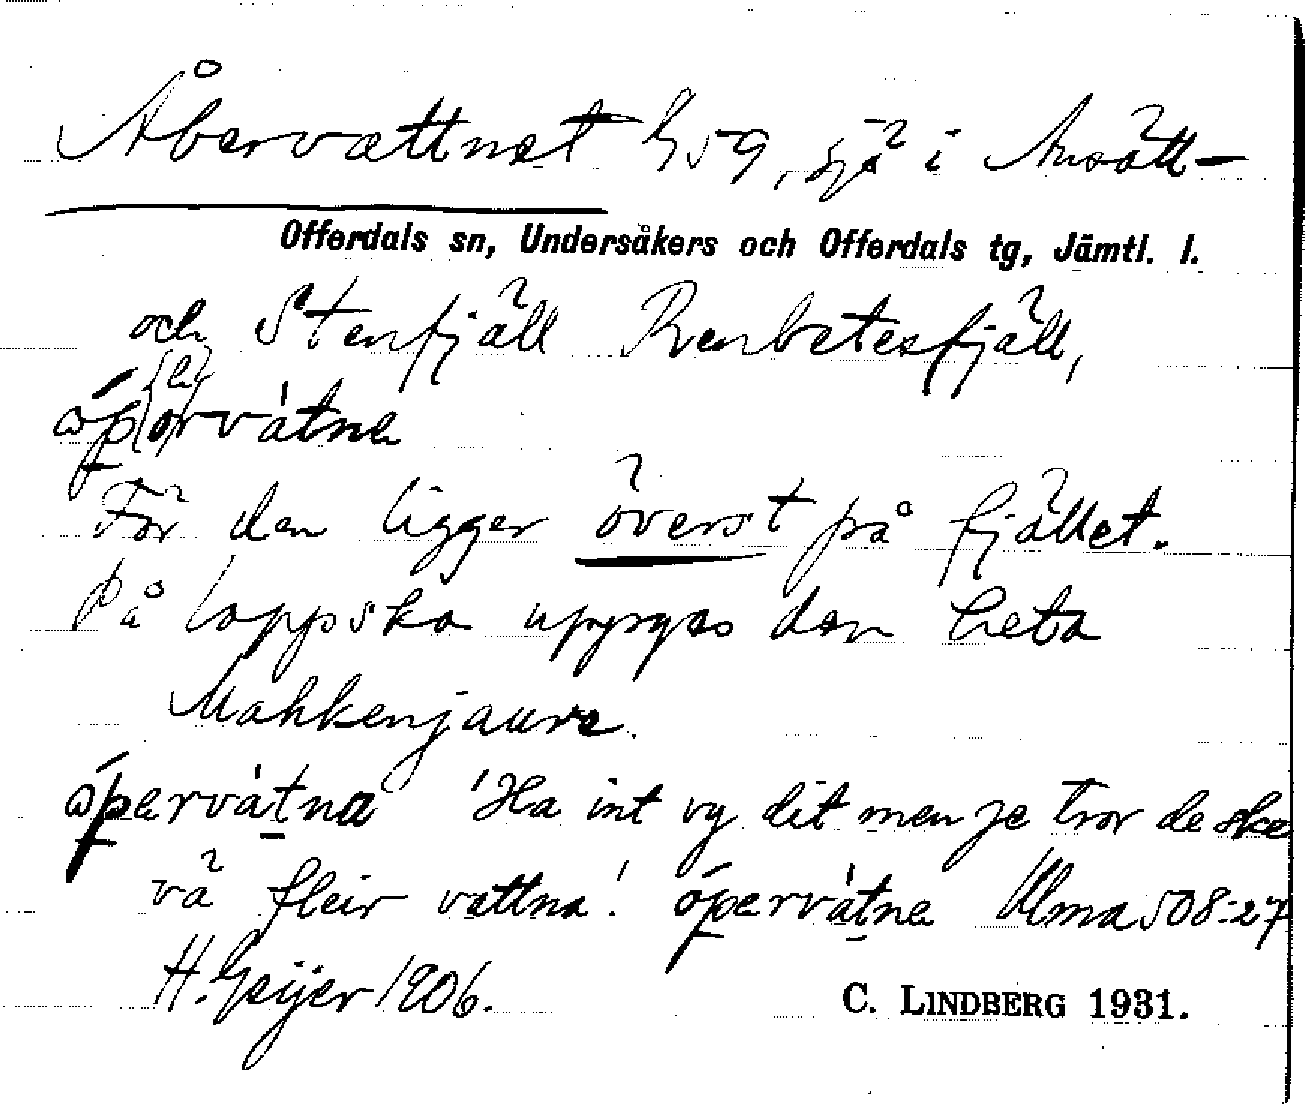 Åbervattnet G59, sjö i Ansätt-
Offerdals sn, Undersåkers och Offerdals tg, Jämtl. l.
och Stenfjäll Renbetesfjäll,
(e)
óp(o)rvàtne
För den ligger överst på fjället.
På lappska uppges den heta
Mahkenjaure.
ópervàtna 'Ha int vy dit men je tror de ska
vä fleir vattna! ópervàtne Ulma 508:27
H. Geijer 1906.
C. LINDBERG 1931.